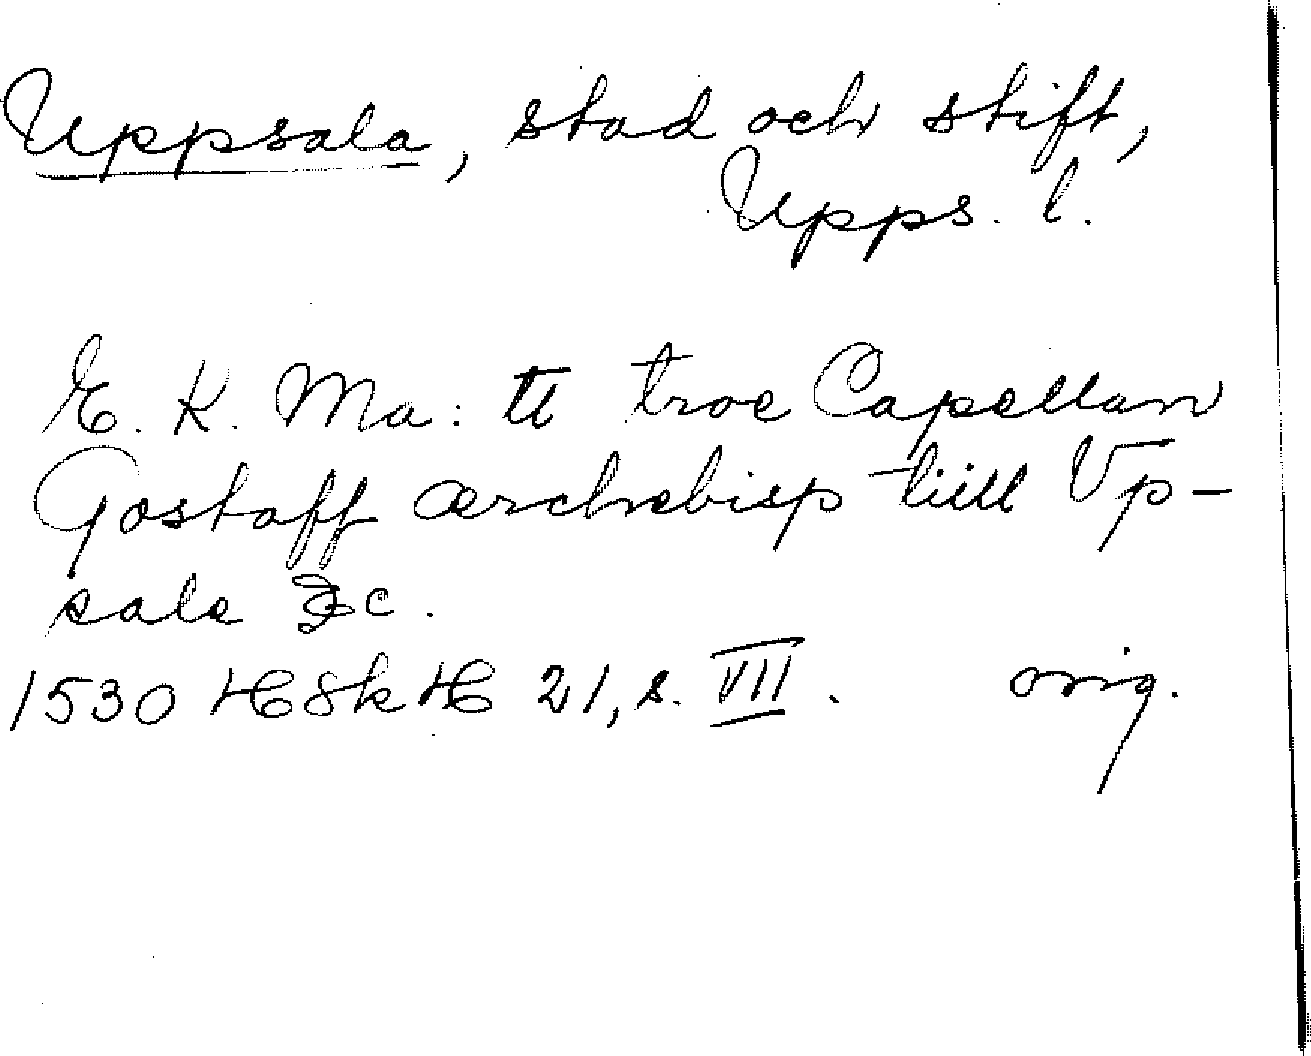 Uppsala, stad och stift,
Upps. l.
E. K. Ma: tt troe Capellan
Gostaff ærchebisp tiill Vp-
sale &c.
1530 HSkH 21, s. VII. orig.